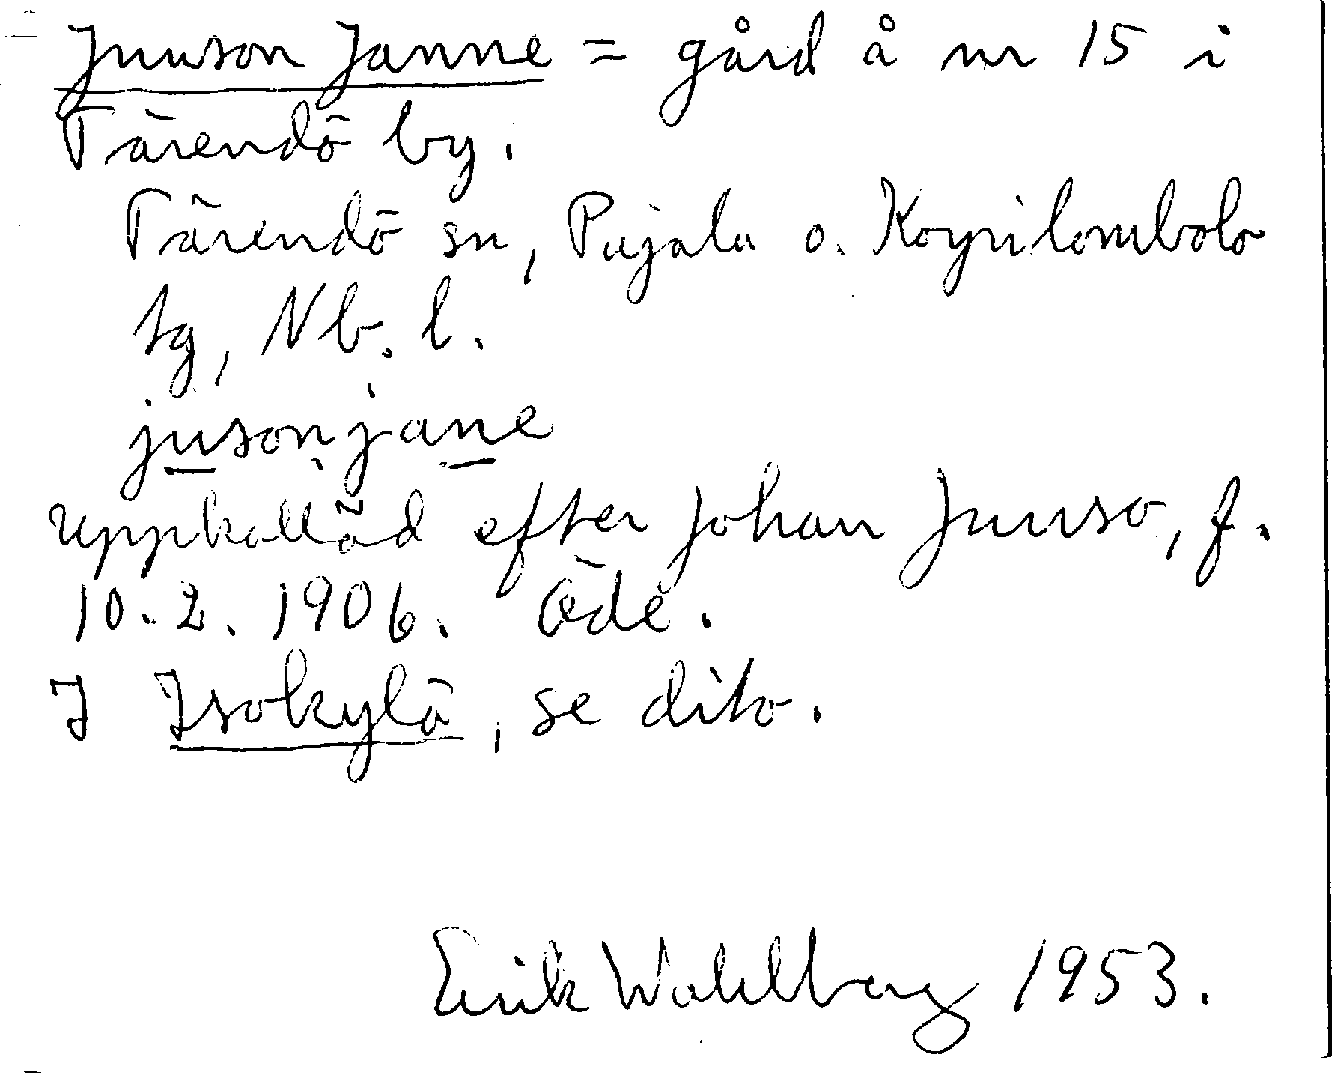 Juuson Janne = gård å nr 15 i
Tärendö by.
Tärendö sn, Pajala o. Korpilombolo
tg, Nb. l.
jusonjane
uppkallad efter Johan Juuso, f.
10.2.1906. Öde.
I Isokylä, se dito.
Erik Wahlberg 1953.